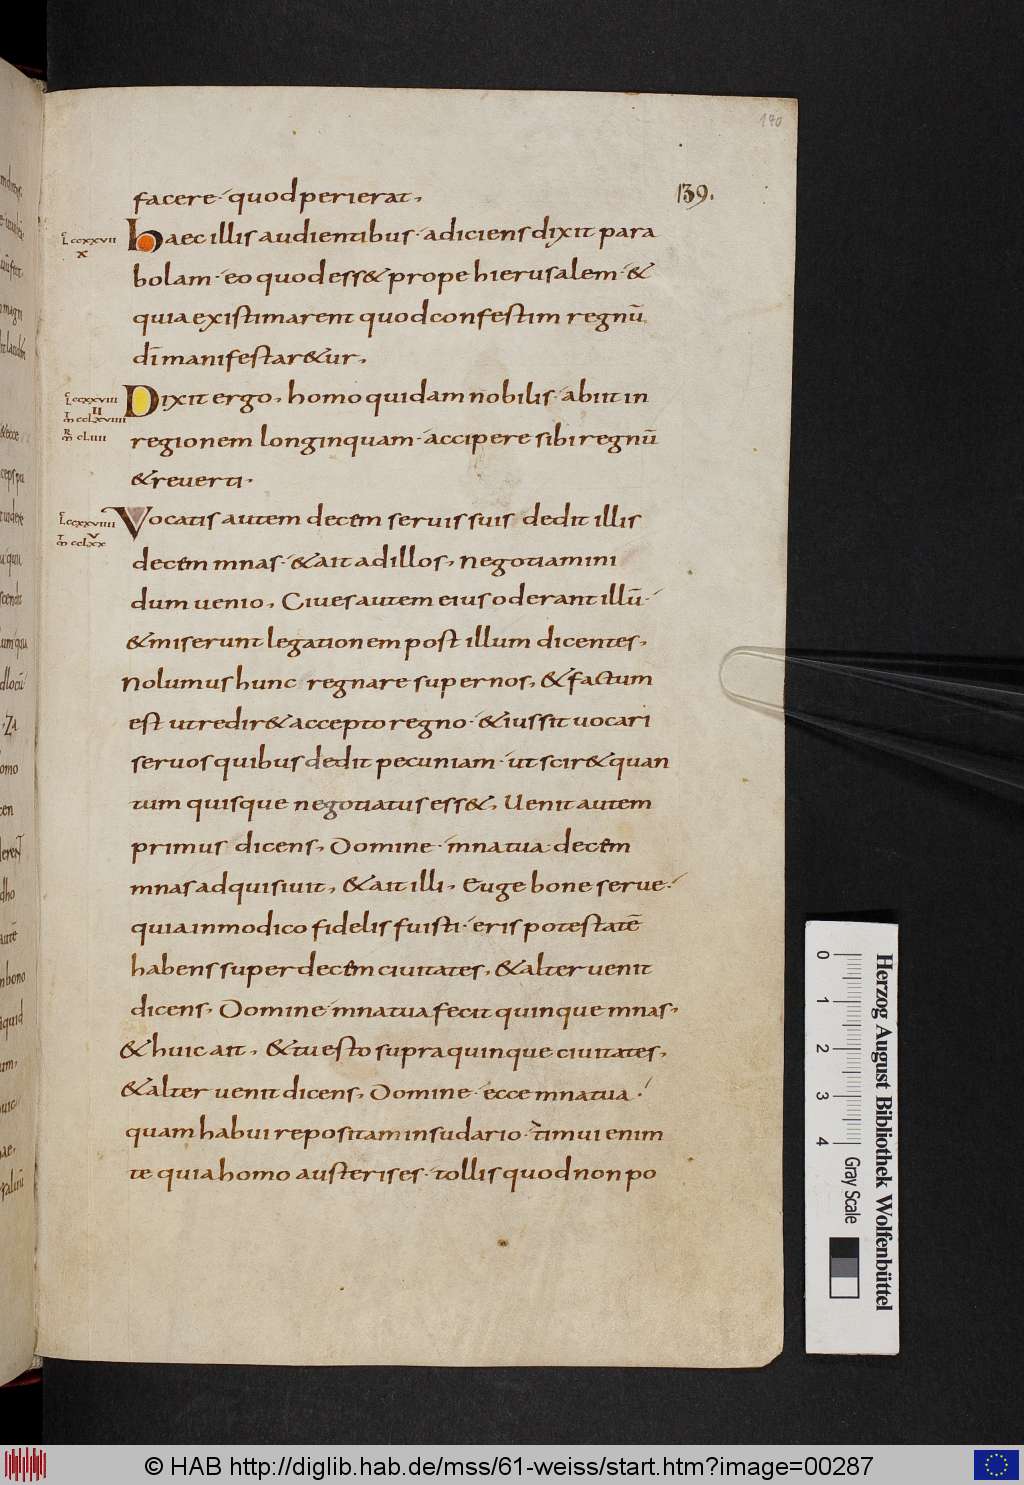 140
facere· quod perierat,
139.
L ccxxvii
x
Haec illis audientibus· adiciens dixit para
bolam· eo quod ess& prope hierusalem· &
quia existimarent quod confestim regnū
dī manifestar&ur,
L ccxxviii
II
m ccLxviiii
m cLiiii
Dixit ergo, homo quidam nobilis· abiit in
regionem longinquam· accipere sibi regnū
& reuerti·
L ccxxviiii
v
m ccLxx
Vocatis autem decem seruis suis dedit illis
decem mnas· & ait ad illos, negotiamini
dum uenio, Ciues autem eius oderant illū·
& miserunt legationem post illum dicentes,
Nolumus hunc regnare super nos, & factum
est ut redir& accepto regno· & iussit uocari
seruos quibus dedit pecuniam· ut scir& quan
tum quisque negotiatus ess&, Uenit autem
primus dicens, Domine· mna tua decem
mnas adquisiuit, & ait illi, Euge bone serue·
quia in modico fidelis fuisti· eris potestatē
habens super decem ciuitates, & alter uenit
dicens, Domine· mna tua fecit quinque mnas,
& huic ait, & tu esto supra quinque ciuitates,
& alter uenit dicens, Domine· ecce mna tua·
quam habui repositam in sudario· timui enim
te quia homo austeris es· tollis quod non po
0 1 2 3 4
Gray Scale
Herzog August Bibliothek Wolfenbüttel
© HAB http://diglib.hab.de/mss/61-weiss/start.htm?image=00287